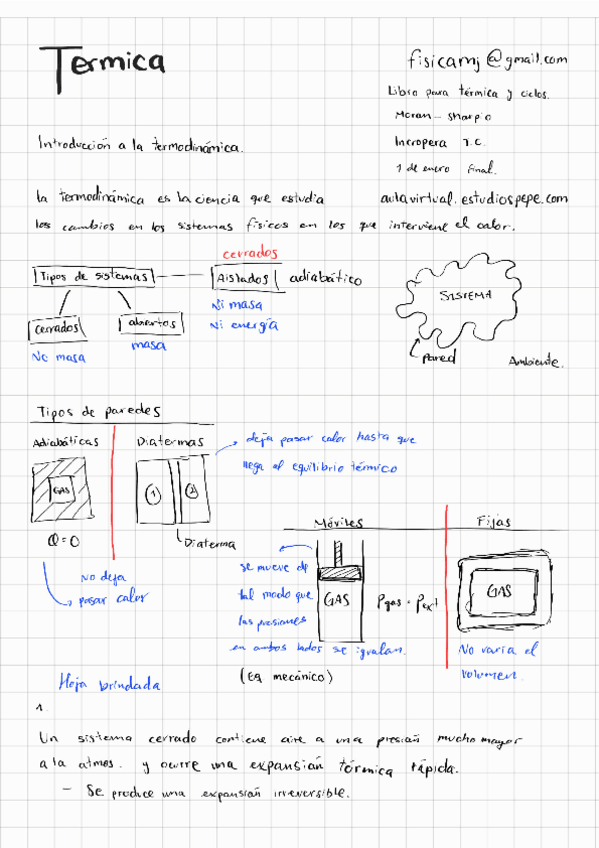 Termica
fisicamj@gmail.com
Libro para térmica y ciclos.
Moran - shapiro
Incropera T.C.
1 de enero final.
Introducción a la termodinámica.
aulavirtual.estudiospepe.com
la termodinámica es la ciencia que estudia
los cambios en los sistemas físicos en los que interviene el calor.
cerrados
Tipos de sistemas
Aislados adiabático
Ni masa
Ni energía
cerrados
abiertos
No masa
masa
SISTEMA
pared
Ambiente.
Tipos de paredes
Adiabáticas
Diatermas
deja pasar calor hasta que
llega al equilibrio térmico
GAS
1
2
Q=0
Diaterma
No deja
pasar calor
Móviles
Fijas
se mueve de
tal modo que
las presiones
en ambos lados se igualan.
GAS
Pgas = Pext
(Eq mecánico)
GAS
No varia el
volumen.
Hoja brindada
1.
Un sistema cerrado contiene aire a una presión mucho mayor
a la atmos. y ocurre una expansión térmica rápida.
- Se produce una expansión irreversible.